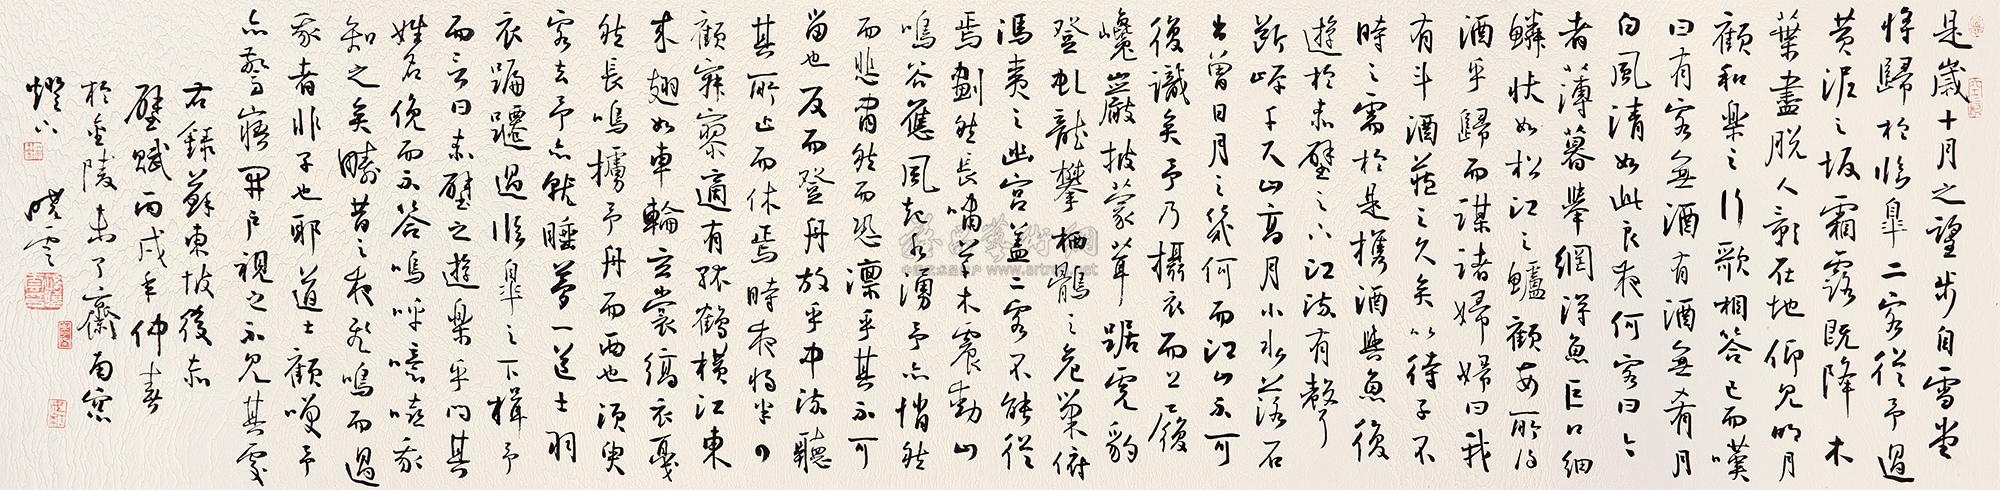 是歲十月之望步自雪堂
將歸於臨皋二客從予過
黃泥之坂霜露既降木
葉盡脫人影在地仰見明月
顧和樂之行歌相答已而嘆
曰有客無酒有酒無肴月
白風清如此良夜何客曰今
者薄暮舉網得魚巨口細
鱗狀如松江之鱸顧安所得
酒乎歸而謀諸婦婦曰我
有斗酒藏之久矣以待子不
時之需於是攜酒與魚復
遊於赤壁之下江流有聲
斷岸千尺山高月小水落石
出曾日月之幾何而江山不可
復識矣予乃攝衣而上履
巉巖披蒙茸踞虎豹
登虬龍攀栖鶻之危巢俯
馮夷之幽宮蓋二客不能從
焉劃然長嘯草木震動山
鳴谷應風起水湧予亦悄然
而悲肅然而恐凜乎其不可
留也反而登舟放乎中流聽
其所止而休焉時夜將半四
顧寂寥適有孤鶴橫江東
來翅如車輪玄裳縞衣戛
然長鳴掠予舟而西也須臾
客去予亦就睡夢一道士羽
衣蹁躚過臨皋之下揖予
而言曰赤壁之遊樂乎問其
姓名俛而不答嗚呼噫嘻我
知之矣疇昔之夜飛鳴而過
我者非子也耶道士顧笑予
亦驚寤開戶視之不見其處
右錄蘇東坡後赤
壁賦丙戌年仲春
於金陵未了齋南窗
燈下 曉雲